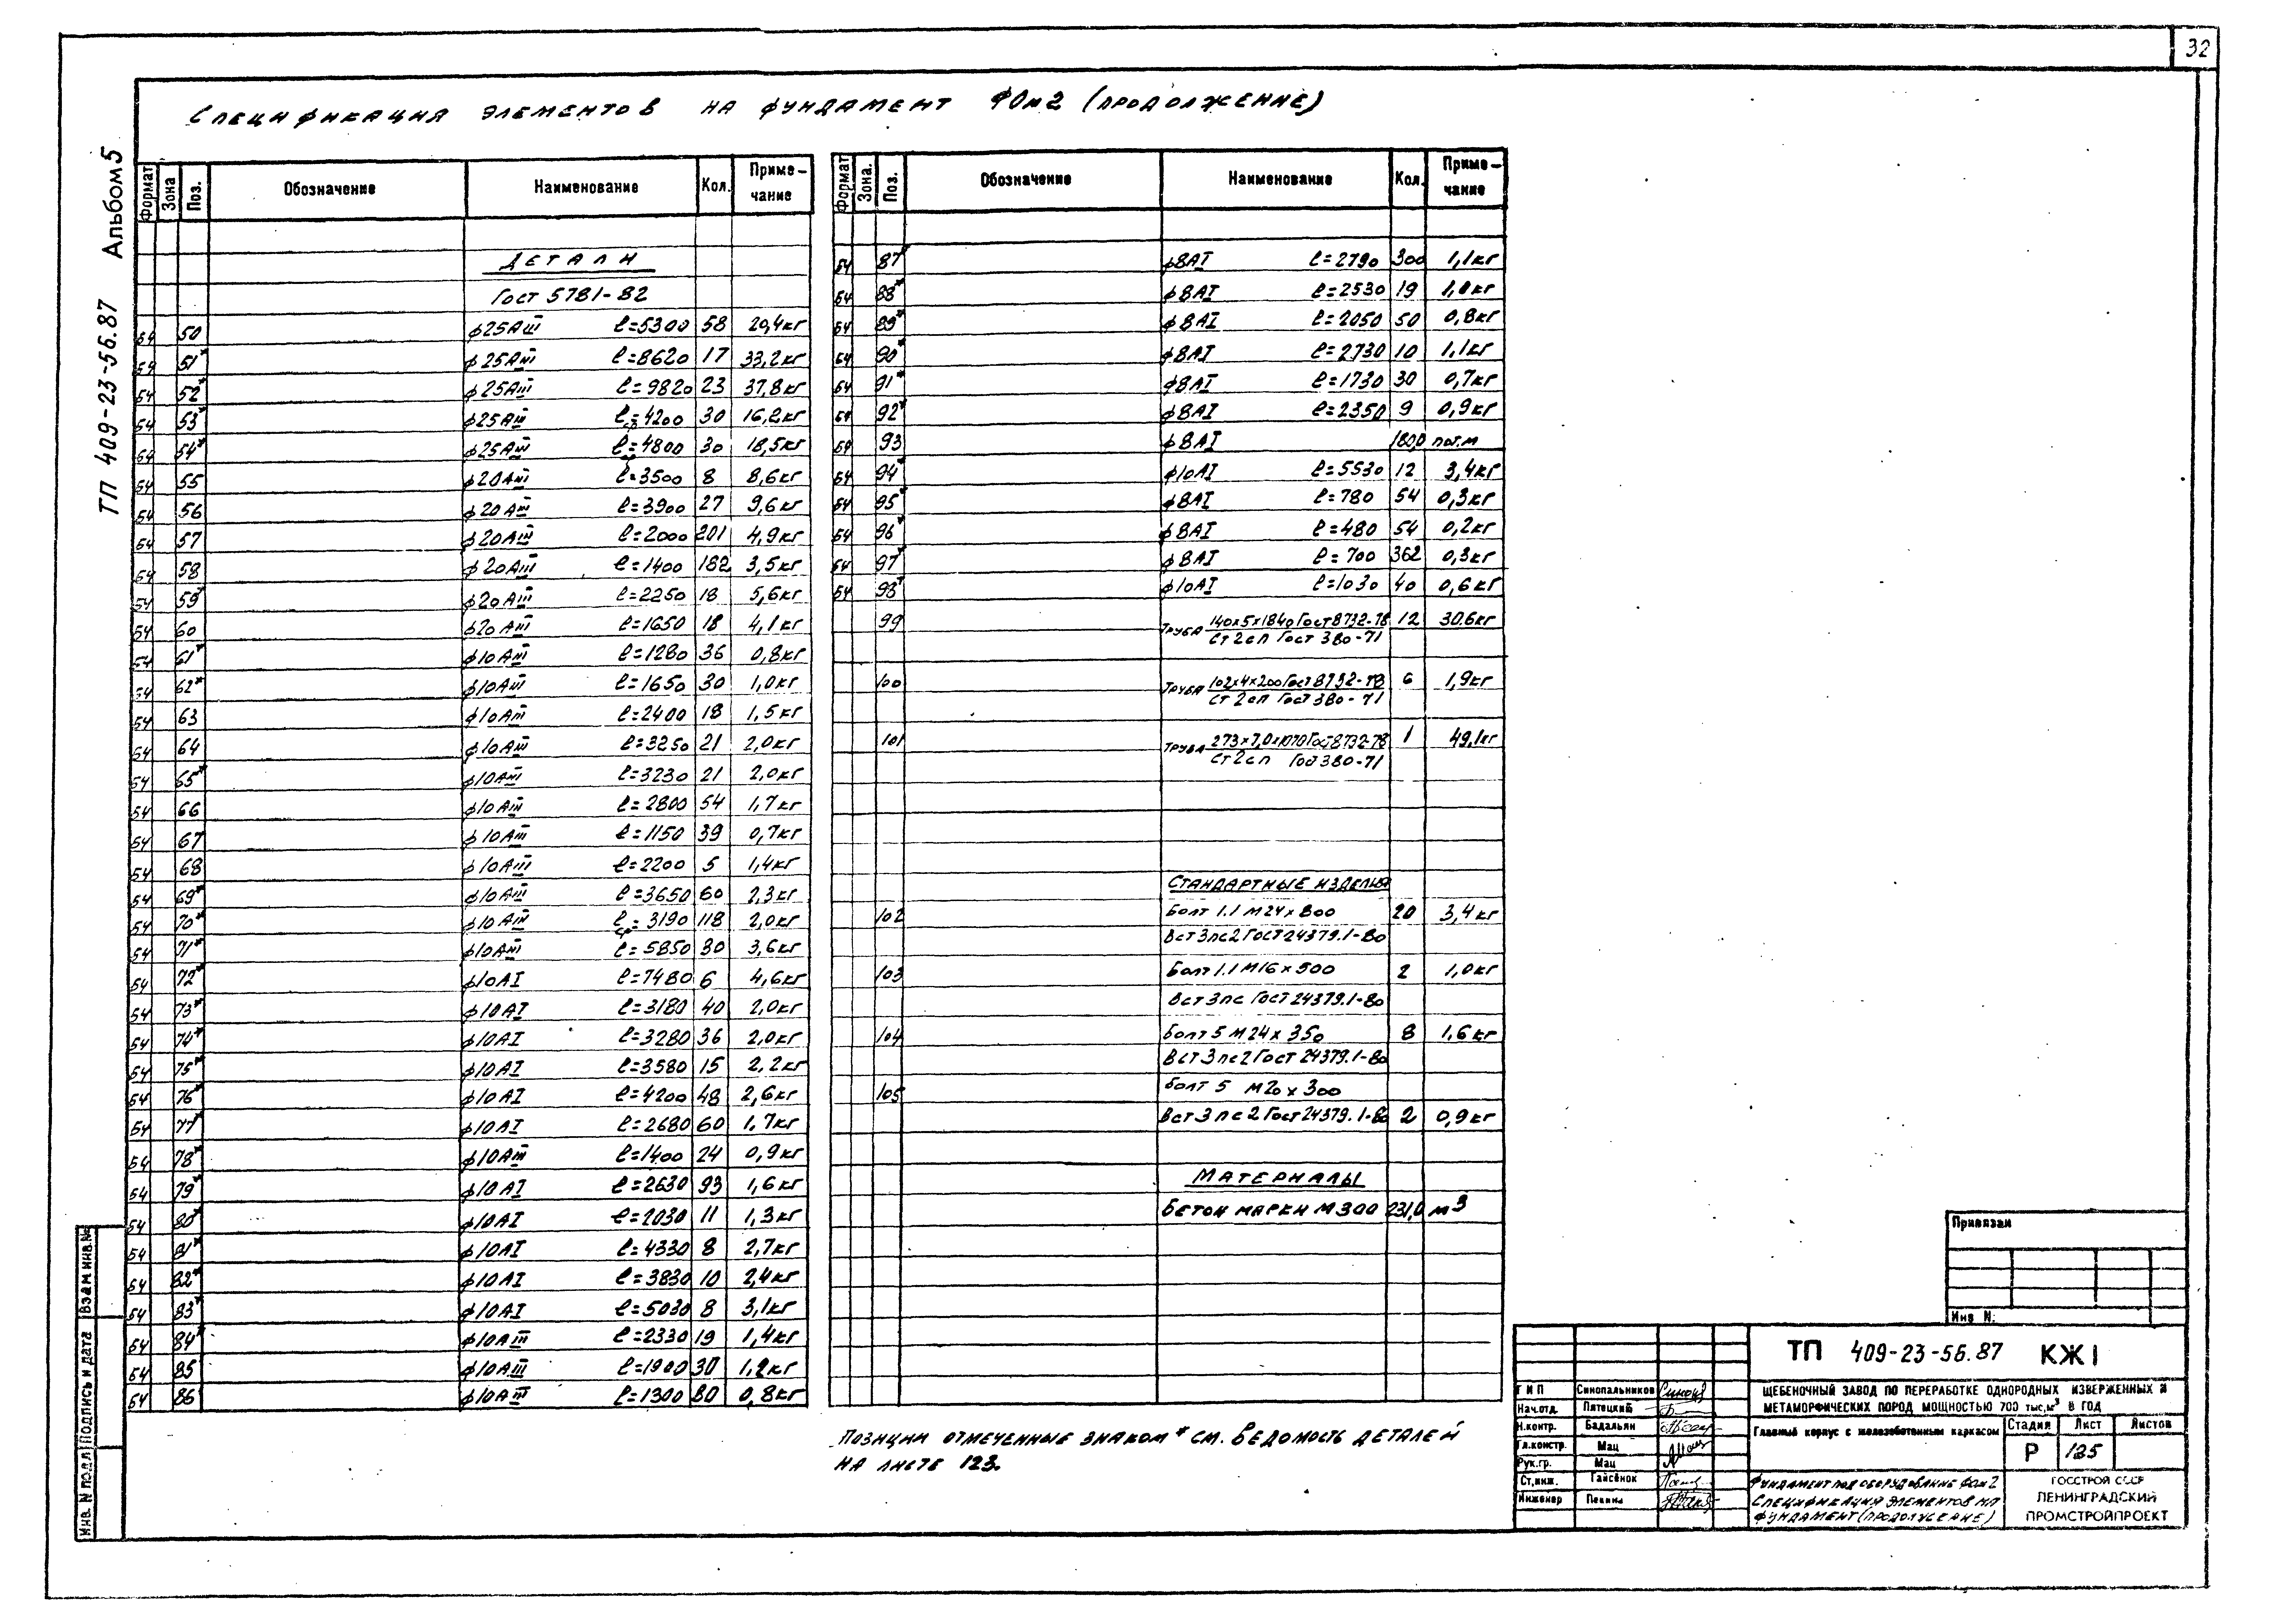 32
Спецификация элементов на фундамент ФОм2 (продолжение)
ТП 409-23-56.87 Альбом 5
Формат Зона Поз. Обозначение Наименование Кол. Примечание
Детали
Гост 5781-82
54 50 ф25АIII ℓ=5300 58 20,4кг
54 51* ф25АIII ℓ=8620 17 33,2кг
54 52* ф25АIII ℓ=9820 23 37,8кг
54 53* ф25АIII ℓср=4200 30 16,2кг
54 54* ф25АIII ℓср=4800 30 18,5кг
54 55 ф20АIII ℓ=3500 8 8,6кг
54 56 ф20АIII ℓ=3900 27 9,6кг
54 57 ф20АIII ℓ=2000 201 4,9кг
54 58 ф20АIII ℓ=1400 182 3,5кг
54 59* ф20АIII ℓ=2250 18 5,6кг
54 60 ф20АIII ℓ=1650 18 4,1кг
54 61* ф10АIII ℓ=1280 36 0,8кг
54 62* ф10АIII ℓ=1650 30 1,0кг
54 63 ф10АIII ℓ=2400 18 1,5кг
54 64 ф10АIII ℓ=3250 21 2,0кг
54 65* ф10АIII ℓ=3230 21 2,0кг
54 66 ф10АIII ℓ=2800 54 1,7кг
54 67 ф10АIII ℓ=1150 39 0,7кг
54 68 ф10АIII ℓ=2200 5 1,4кг
54 69* ф10АIII ℓ=3650 60 2,3кг
54 70* ф10АIII ℓср=3190 118 2,0кг
54 71* ф10АIII ℓ=5850 30 3,6кг
54 72* ф10АI ℓ=7480 6 4,6кг
54 73* ф10АI ℓ=3180 40 2,0кг
54 74* ф10АI ℓ=3280 36 2,0кг
54 75* ф10АI ℓ=3580 15 2,2кг
54 76* ф10АI ℓ=4200 48 2,6кг
54 77* ф10АI ℓ=2680 60 1,7кг
54 78* ф10АIII ℓ=1400 24 0,9кг
54 79* ф10АI ℓ=2630 93 1,6кг
54 80* ф10АI ℓ=2030 11 1,3кг
54 81* ф10АI ℓ=4330 8 2,7кг
54 82* ф10АI ℓ=3830 10 2,4кг
54 83* ф10АI ℓ=5030 8 3,1кг
54 84* ф10АIII ℓ=2330 19 1,4кг
54 85 ф10АIII ℓ=1900 30 1,2кг
54 86 ф10АIII ℓ=1300 80 0,8кг
Формат Зона. Поз. Обозначение Наименование Кол. Примечание
54 87* ф8АI ℓ=2790 300 1,1кг
54 88* ф8АI ℓ=2530 19 1,0кг
54 89* ф8АI ℓ=2050 50 0,8кг
54 90* ф8АI ℓ=2730 10 1,1кг
54 91* ф8АI ℓ=1730 30 0,7кг
54 92* ф8АI ℓ=2350 9 0,9кг
54 93 ф8АI 180,0 пог.м
54 94* ф10АI ℓ=5530 12 3,4кг
54 95* ф8АI ℓ=780 54 0,3кг
54 96* ф8АI ℓ=480 54 0,2кг
54 97* ф8АI ℓ=700 362 0,3кг
54 98* ф10АI ℓ=1030 40 0,6кг
99 Труба 140х5х1840 Гост 8732-78 12 30,6кг
Ст2сп Гост 380-71
100 Труба 102х4х200 Гост 8732-78 6 1,9кг
Ст2сп Гост 380-71
101 Труба 273х7,0х1070 Гост 8732-78 1 49,1кг
Ст2сп Гост 380-71
Стандартные изделия
102 Болт 1.1 М24х800 20 3,4кг
Вст3пс2 Гост 24379.1-80
103 Болт 1.1 М16х500 2 1,0кг
Вст3пс Гост 24379.1-80
104 Болт 5 М24х350 8 1,6кг
Вст3пс2 Гост 24379.1-80
105 болт 5 М20х300
Вст3пс2 Гост 24379.1-80 2 0,9кг
Материалы
Бетон марки М300 231,0 м3
Позиции отмеченные знаком * см. Ведомость деталей
на листе 123.
Привязан
Инв N:
ТП 409-23-56.87 КЖ1
ЩЕБЕНОЧНЫЙ ЗАВОД ПО ПЕРЕРАБОТКЕ ОДНОРОДНЫХ ИЗВЕРЖЕННЫХ И
МЕТАМОРФИЧЕСКИХ ПОРОД МОЩНОСТЬЮ 700 тыс.м3 В ГОД
Главный корпус с железобетонным каркасом
Стадия Лист Листов
Р 125
Фундамент под оборудование ФОм2
Спецификация элементов на
фундамент (продолжение)
ГОССТРОЙ СССР
ЛЕНИНГРАДСКИЙ
ПРОМСТРОЙПРОЕКТ
ГИП Синопальников
Нач.отд. Пятецкий
Н.контр. Бадальян
Гл.констр. Мац
Рук.гр. Мац
Ст.инж. Гайсёнок
Инженер Пекина
Взам.инв.№
Подпись и дата
Инв. N подл